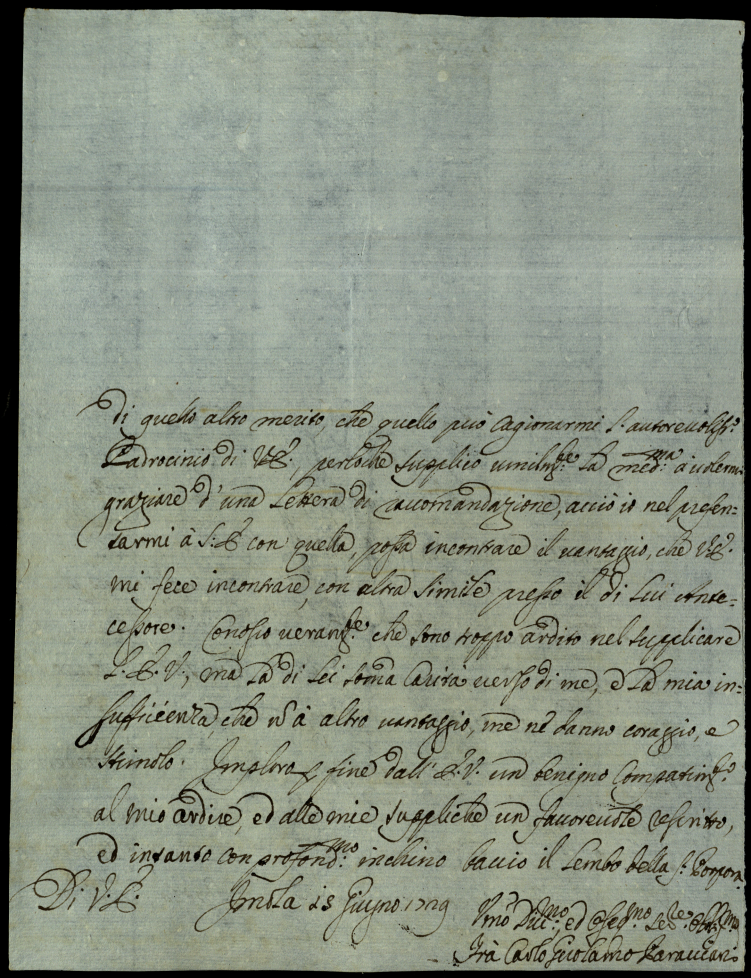 di quello altro merito, che quello può cagionarmi l'autorevoliss.º
Padrocinio di V.E., perloche supplico umilm.te la med.ma à volermi
graziare d'una Lettera di raccomandazione, acciò io nel presen=
tarmi à S: E con quella, possa incontrare il vantaggio, che V.E.
mi fece incontrare, con altra simile presso il di Lui Ante=
cessore. Conosco veram.te che sono troppo ardito nel supplicare
L'E.V., mà la di Lei somma Carità verso di me, e la mia in=
sufficienza, che à altro vantaggio, me ne danno coraggio, e
stimolo. Imploro p fine dall'E.V. un benigno Compatim.to
al mio ardire, ed alle mie suppliche un favorevole rescritto,
ed intanto con profond.mo inchino baccio il Lembo della S. Porpora
Di V.E. Imola 15 Giugno 1729
Umo Div.mo, ed Oseq.mo Se.re Obl.mo
Frà Carlo Girolamo